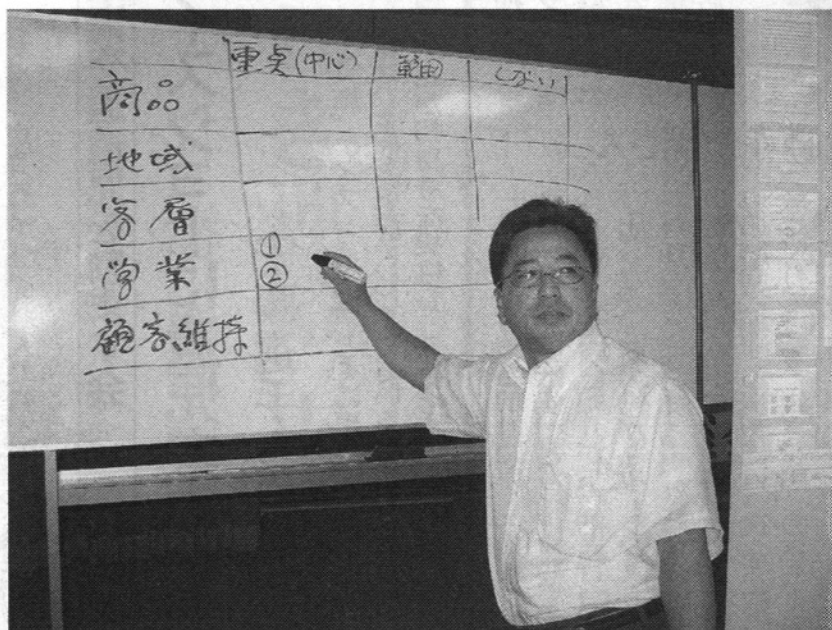 重点(中心) 範囲
商品
地域
客層
営業 ① ②
顧客維持